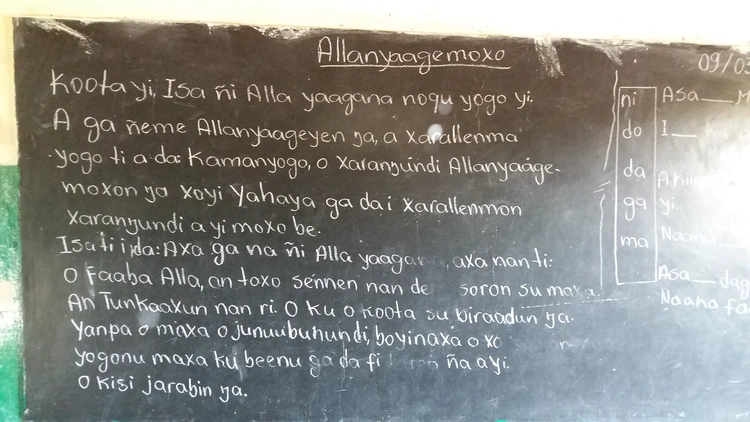 Allanyaagemoxo
Koota yi, Isa ñi Alla yaagana noqu yogo yi.
A ga ñeme Allanyaageyen ŋa, a xarallenma
yogo ti a da: Kamanyogo, o xaranŋundi Allanyaage-
moxon ŋa xoyi Yahaya ga da i xarallenmon
xaranŋundi a yi moxo be.
Isa ti i da: Axa ga na ñi Alla yaaga , axa nan ti:
O Faaba Alla, an toxo sennen nan de soron su maxa.
An Tunkaaxun nan ri. O ku o koota su biraadun ŋa.
Yanpa o maxa o junuubuhundi, boyinaxa o xo
yogonu maxa ku beenu ga da fi ña a yi.
O kisi jarabin ŋa.
09/03
ni
do
da
ga
ma
Asa ___ M
I ___
yi.
Naana ___
Asa ___ dag
Naana fa